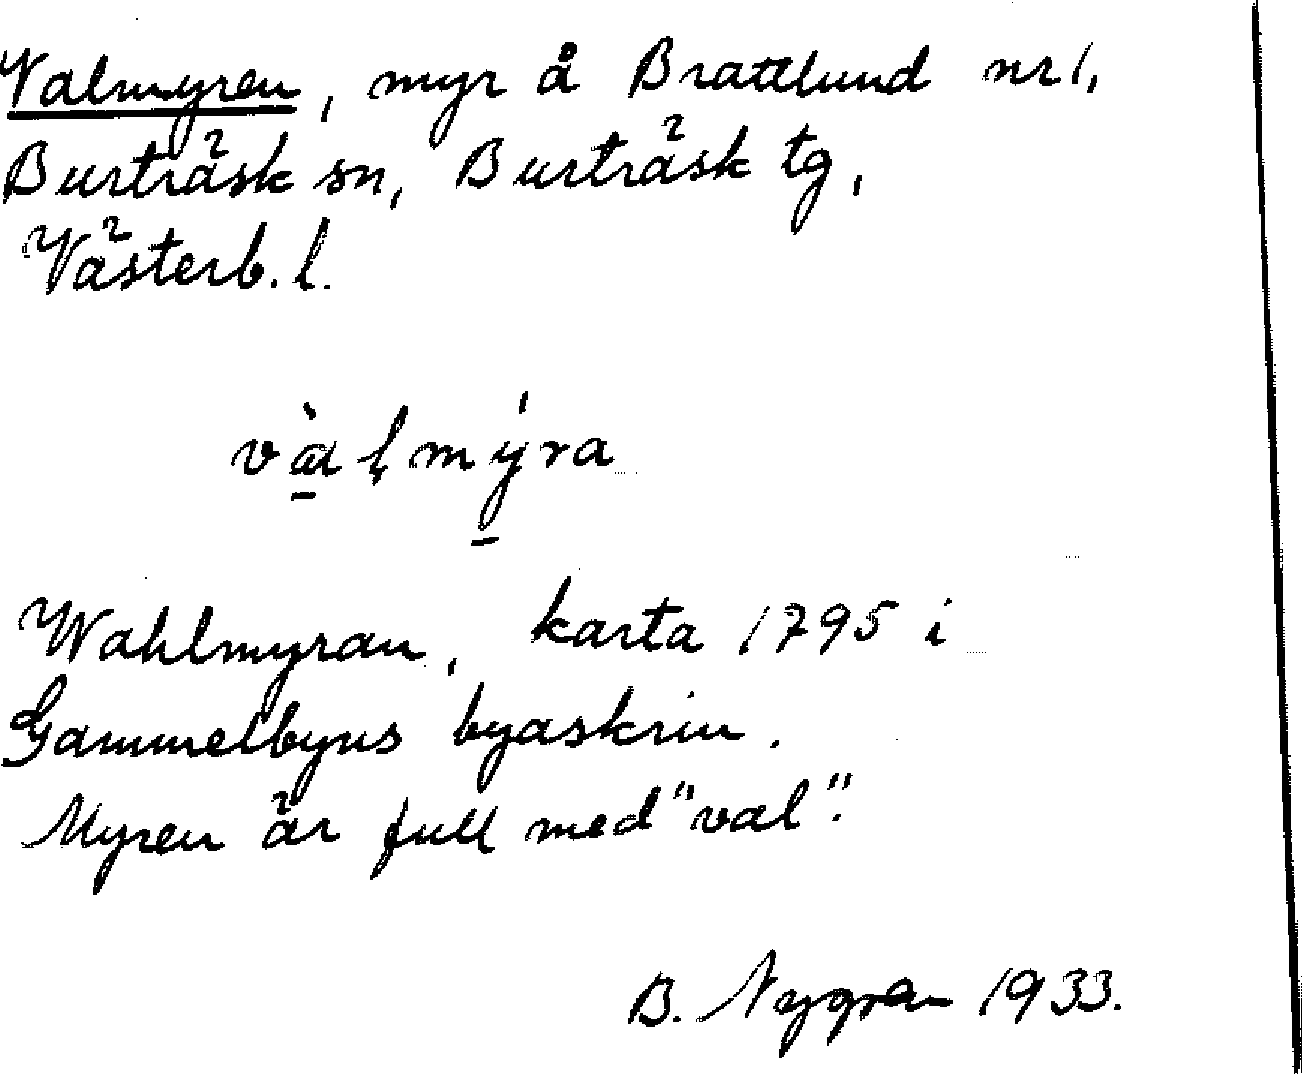 Valmyren, myr å Brattlund nr 1,
Burträsk sn, Burträsk tg,
Västerb. l.
vàḷmýra
Wahlmyran, karta 1795 i
Gammelbyns byaskrin.
Myren är full med "val".
B. Nygren 1933.